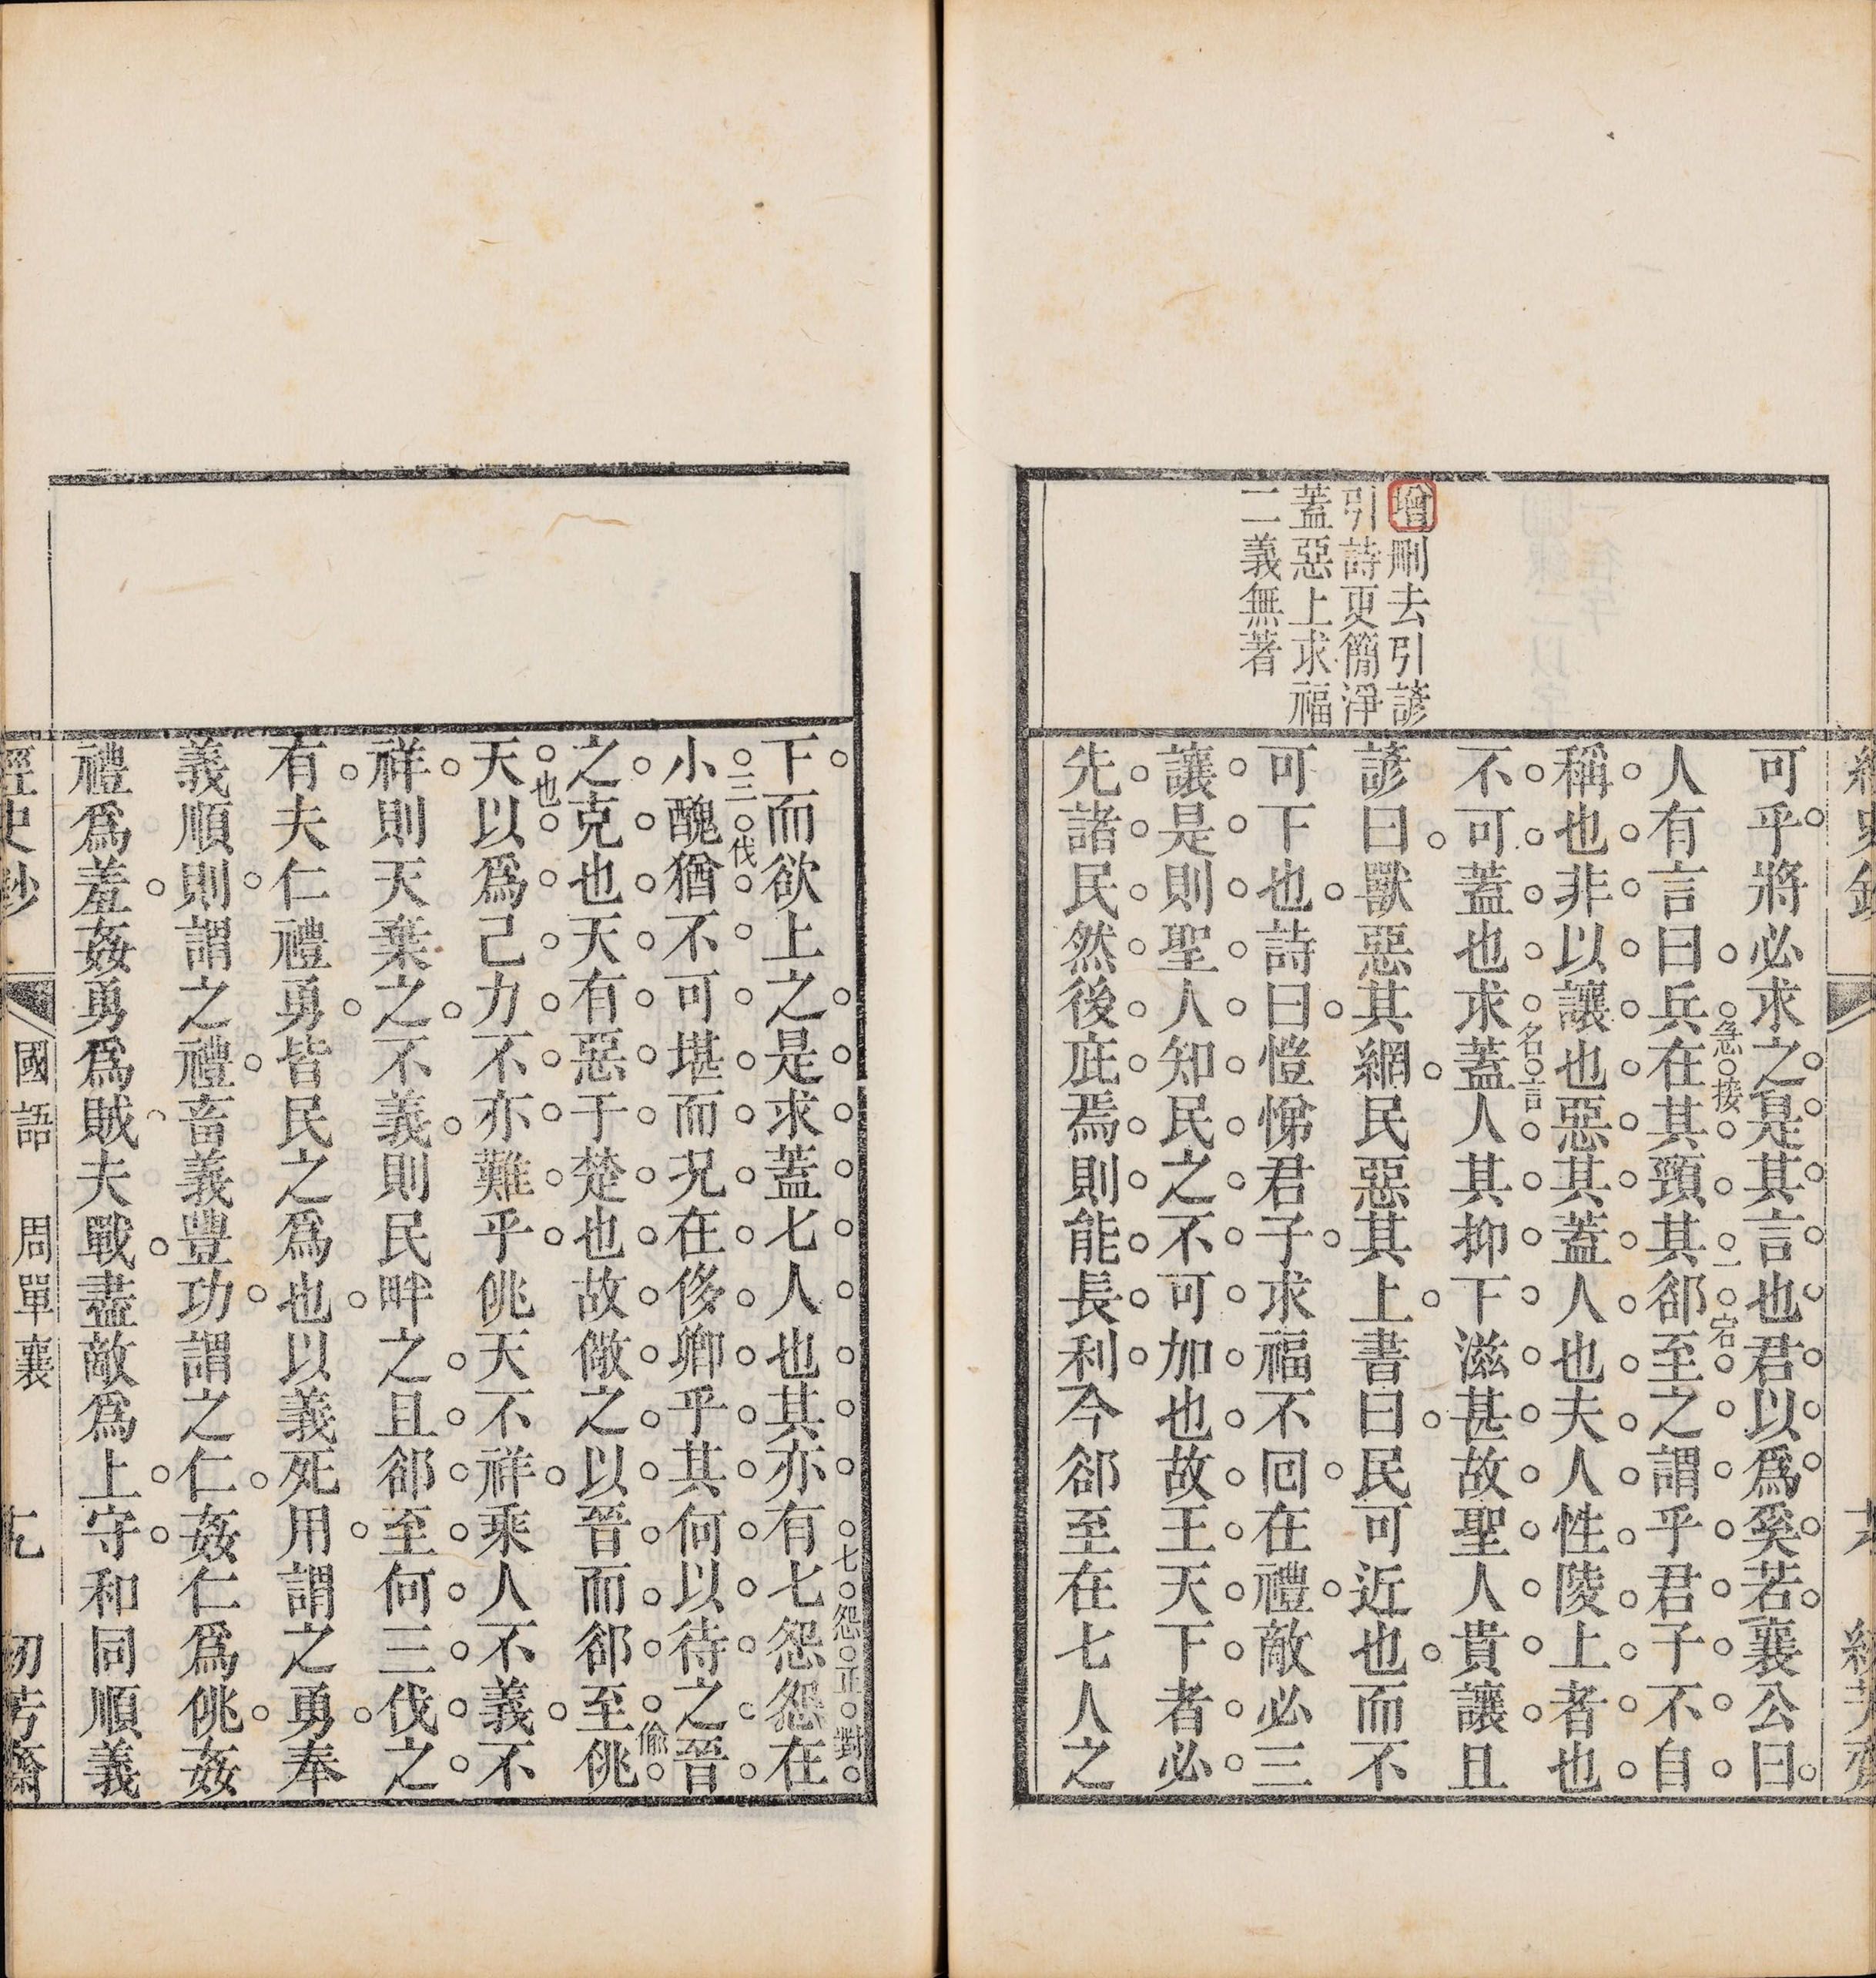 增刪去引諺
引詩更簡淨
蓋惡上求福
二義無著
可乎將必求之是其言也君以爲奚若襄公曰
人有言曰兵在其頸其郤至之謂乎君子不自
急接
一宕
稱也非以讓也惡其蓋人也夫人性陵上者也
不可蓋也求蓋人其抑下滋甚故聖人貴讓且
名言
諺曰獸惡其網民惡其上書曰民可近也而不
可下也詩曰愷悌君子求福不囘在禮敵必三
讓是則聖人知民之不可加也故王天下者必
先諸民然後庇焉則能長利今郤至在七人之
下而欲上之是求蓋七人也其亦有七怨怨在
七怨正對
小醜猶不可堪而況在侈卿乎其何以待之晉
三伐
之克也天有惡于楚也故儆之以晉而郤至佻
偷
天以爲己力不亦難乎佻天不祥乘人不義不
也
祥則天棄之不義則民畔之且郤至何三伐之
有夫仁禮勇皆民之爲也以義死用謂之勇奉
義順則謂之禮畜義豐功謂之仁姦仁爲佻姦
禮爲羞姦勇爲賊夫戰盡敵爲上守和同順義
經史鈔
國語
周單襄